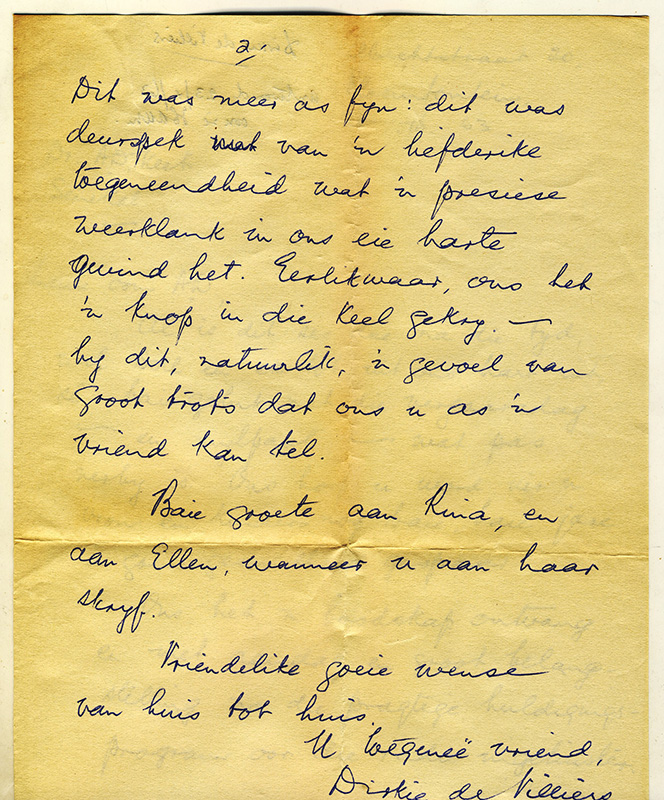 2/
Dit was meer as fyn: dit was
deurspek van 'n liefderike
toegeneendheid wat 'n presiese
weerklank in ons eie harte
gevind het. Eerlikwaar, ons het
'n knop in die keel gekry. —
by dit, natuurlik, 'n gevoel van
groot trots dat ons u as 'n
vriend kan tel.
Baie groete aan Rina, en
aan Ellen, wanneer u aan haar
skryf.
Vriendelike goeie wense
van huis tot huis.
U toegeneë vriend,
Dirkie de Villiers